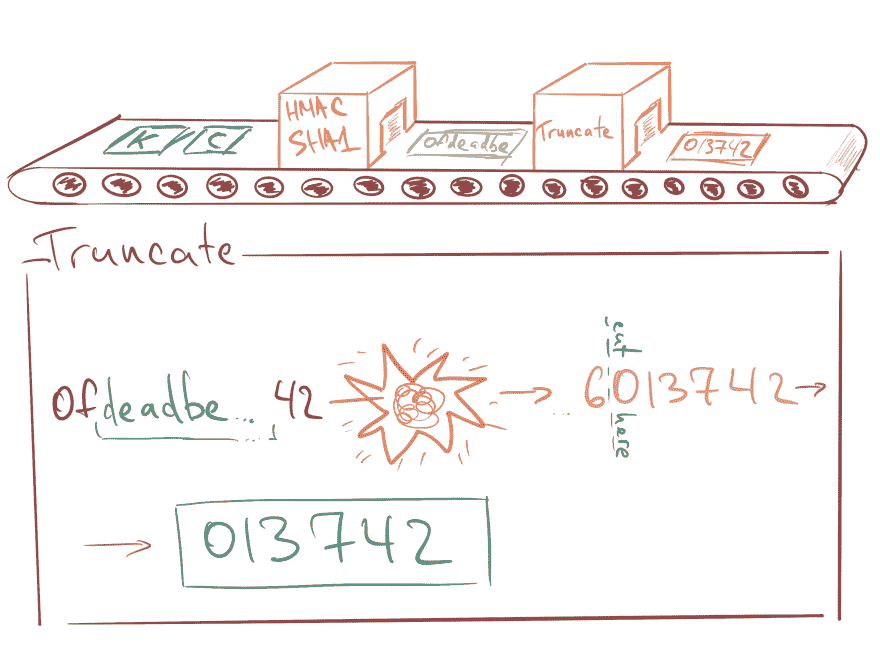 K C HMAC SHA1 0fdeadbe Truncate 013742
Truncate
cut here
0fdeadbe... 42 6013742
013742